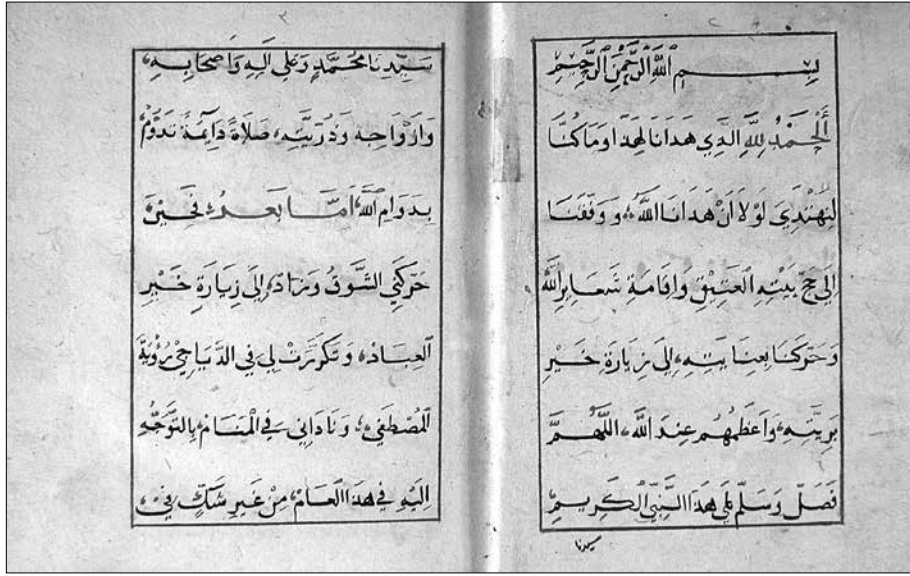 بِسْمِ اللَّهِ الرَّحْمٰنِ الرَّحِيمِ
أَلْحَمْدُ لِلَّهِ الَّذِي هَدَانَا لِهَذَا وَمَا كُنَّا
لِنَهْتَدِيَ لَوْلَا أَنْ هَدَانَا اللَّهُ، وَوَفَّقَنَا
إِلَى حَجِّ بَيْتِهِ الْعَتِيقِ وَإِقَامَةِ شَعَايِرِ اللَّهِ
وَحَرَّكَنَا بِعِنَايَتِهِ، إِلَى زِيَارَةِ خَيْرِ
بَرِيَّتِهِ، وَأَعْظَمُهُمْ عِنْدَ اللَّهِ، اللَّهُمَّ
فَصَلِّ وَسَلِّمْ عَلَى هَذَا النَّبِيِّ الْكَرِيمِ
سيدنا
٣
سَيِّدِنَا مُحَمَّدٍ وَعَلَى آلِهِ وَأَصْحَابِهِ،
وَأَزْوَاجِهِ وَذُرِّيَّتِهِ، صَلَاةً دَايِمَةً تَدُومُ
بِدَوَامِ اللَّهِ، أَمَّا بَعْدُ، فَحِينَ
حَرَّكَنِي الشَّوْقُ وَزَادَ، إِلَى زِيَارَةِ خَيْرِ
الْعِبَادِ، وَتَكَرَّرَتْ لِي فِي الدُّنْيَا حِجَى رُؤْيَةُ
الْمُصْطَفَى، وَنَادَانِي فِي الْمَنَامْ، بِالتَّوَجُّهِ
إِلَيْهِ فِي هَذَا الْعَامْ، مِنْ غَيْرِ شَكٍّ فِي،